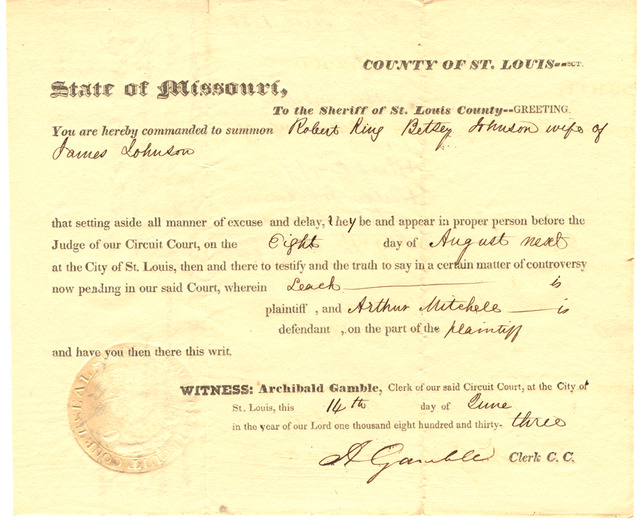 COUNTY OF ST. LOUIS--SCT.
State of Missouri,
To the Sheriff of St. Louis County--GREETING.
You are hereby commanded to summon Robert King Betsey Johnson wife of
James Johnson
that setting aside all manner of excuse and delay, they be and appear in proper person before the
Judge of our Circuit Court, on the Eight day of August next
at the City of St. Louis, then and there to testify and the truth to say in a certain matter of controversy
now pending in our said Court, wherein Leach is
plaintiff , and Arthur Mitchell is
defendant , on the part of the plaintiff
and have you then there this writ.
WITNESS: Archibald Gamble, Clerk of our said Circuit Court, at the City of
St. Louis, this 14th day of June
in the year of our Lord one thousand eight hundred and thirty- three
A Gamble Clerk C. C.